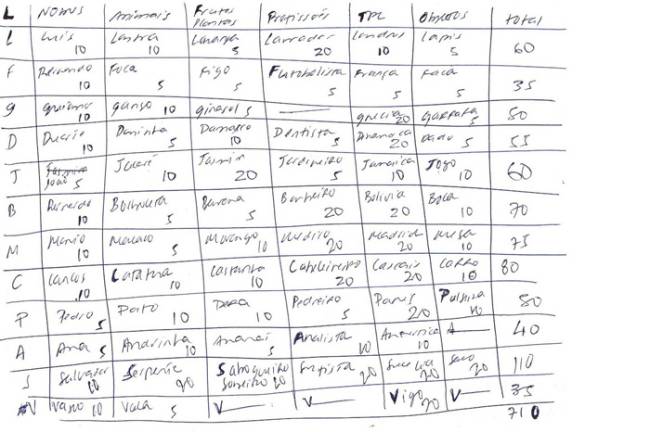 L Nomes Animais Frutos Plantas Profissões TPL Objetos total
L Luis 10 Lontra 10 Laranja 5 Lavrador 20 Londres 10 Lapis 5 60
F 10 Foca 5 Figo 5 Futebolista 5 França 5 Faca 5 35
g 10 ganso 10 girasol 5 — grecia 20 garrafa 5 50
D Duarte 10 Doninha 5 Damasco 10 Dentista 5 Dinamarca 20 Dado 5 55
J João 5 Javali 10 Jasmin 20 Jardineiro 5 Jamaica 10 Jogo 10 60
B Bernardo 10 Borboleta 5 Banana 5 Banheiro 20 Bolivia 20 Bola 10 70
M Mario 10 Macaco 5 Morango 10 Medico 20 Madrid 20 Mesa 10 75
C Carlos 10 Catatua 10 Castanha 10 Cabeleireiro 20 Cascais 20 Carro 10 80
P Pedro 5 Pato 10 Pera 10 Pedreiro 5 Paris 20 Pulseira 10 50
A Ana 5 Andorinha 10 Ananás 5 Analista 10 America 10 A — 40
S Salvador 10 Serpente 20 20 20 Suecia 20 Saco 20 110
V Vasco 10 Vaca 5 V — V — Vigo 20 V — 35
710